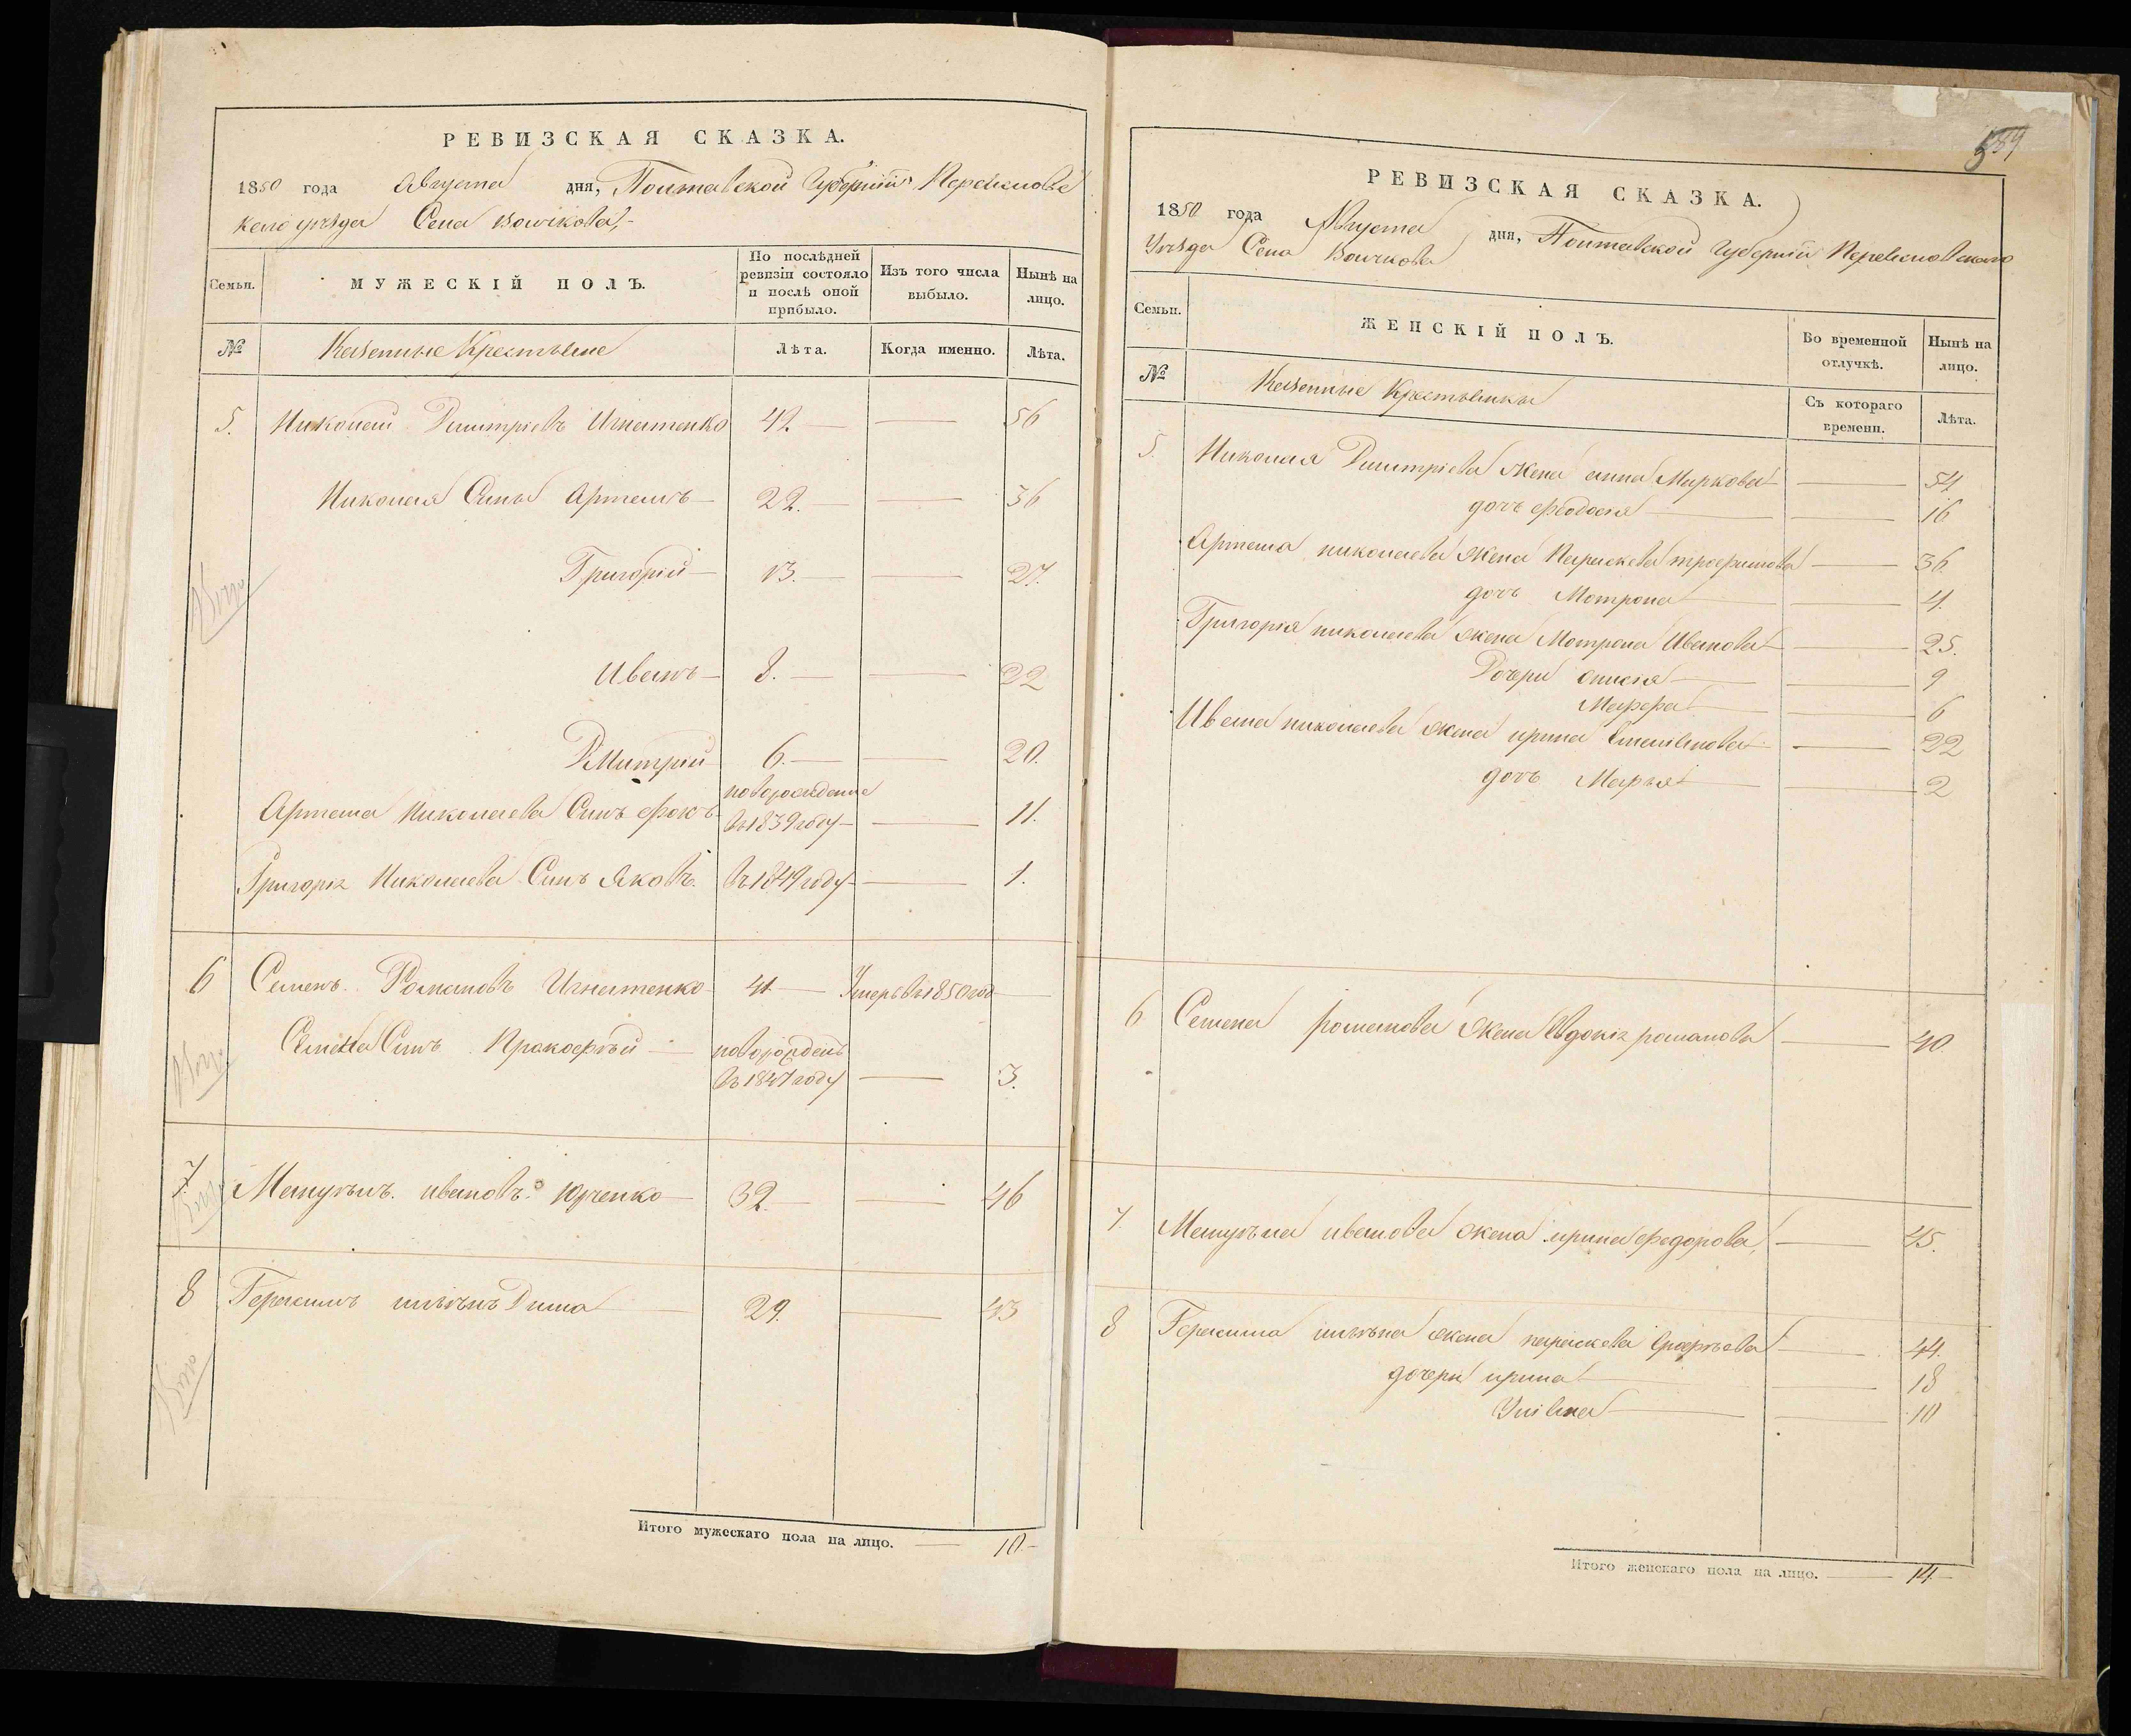 РЕВИЗСКАЯ СКАЗКА.
1850 года Августа дня, Полтавской Губерніи Переяславс
каго уѣзда Села Волчкова,
Семьи.
МУЖЕСКІЙ ПОЛЪ.
По послѣдней ревизіи состояло и послѣ оной прибыло.
Изъ того числа выбыло.
Нынѣ на лицо.
№ Казенные Крестьяне Лѣта. Когда именно. Лѣта.
5. Николай Дмитріевъ Игнатенко 42. — — 56
Николая Сыны Артемъ — 22. — — 36
Григорій — 13. — — 27.
Иванъ — 8. — — 22
Дмитрій — 6. — — 20.
новорожденые
Артема Николаева Сынъ Фокъ — въ 1839 году — — 11.
Григорія Николаева Сынъ Яковъ. въ 1849 году — — 1.
6 Семенъ Романовъ Игнатенко — 41 — Умеръ въ 1850 год —
Семена Сынъ Прокофій — новорожденъ
въ 1847 году — 3.
7. Мануилъ. ивановъ Юрченко — 32. — — 46
8 Герасимъ Дима — 29. — 43
Итого мужескаго пола на лицо. — 10. —
589
РЕВИЗСКАЯ СКАЗКА.
1850 года Августа дня, Полтавской Губерніи Переяславскаго
Уѣзда Села Волчкова
Семьи.
ЖЕНСКІЙ ПОЛЪ.
Во временной отлучкѣ.
Нынѣ на лицо.
№ Казенные Крестьянки Съ котораго времени. Лѣта.
5. Николая Дмитріева жена анна Маркова — 54
дочь феодосія — — 16
Артема николаева жена Параскева трофимова — 36.
дочь Мотрона — — 4.
Григорія николаева жена Мотрона Иванова — 25.
Дочери анисія — — 9
Марфа — — 6
Ивана николаева жена ирина — 22
дочь Марья — — 2
6 Семена романова жена Евдокія романова — 40.
7. Мануила иванова жена ирина федорова, — 45.
8 Герасима жена параскева — 44.
дочери ирина — — 18
Уліяна — — 10
Итого женскаго пола на лицо. — 14 —